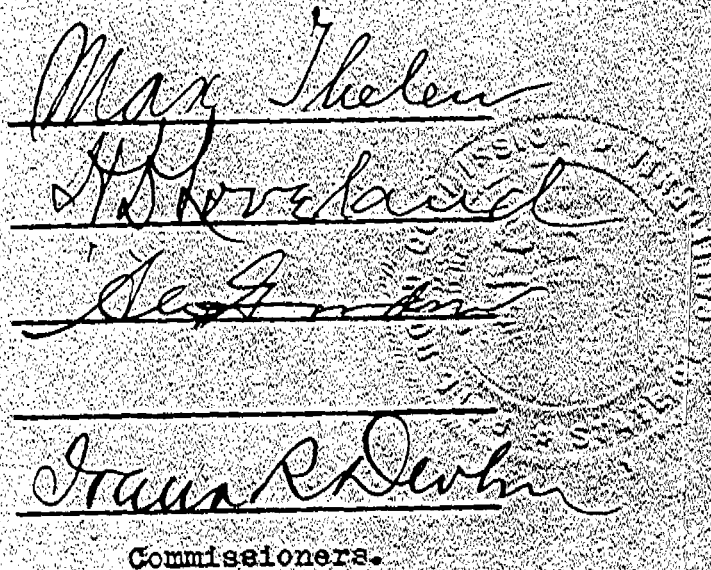 Max Thelen
H D Loveland
Alex Gordon
Frank R Devlin
Commissioners.